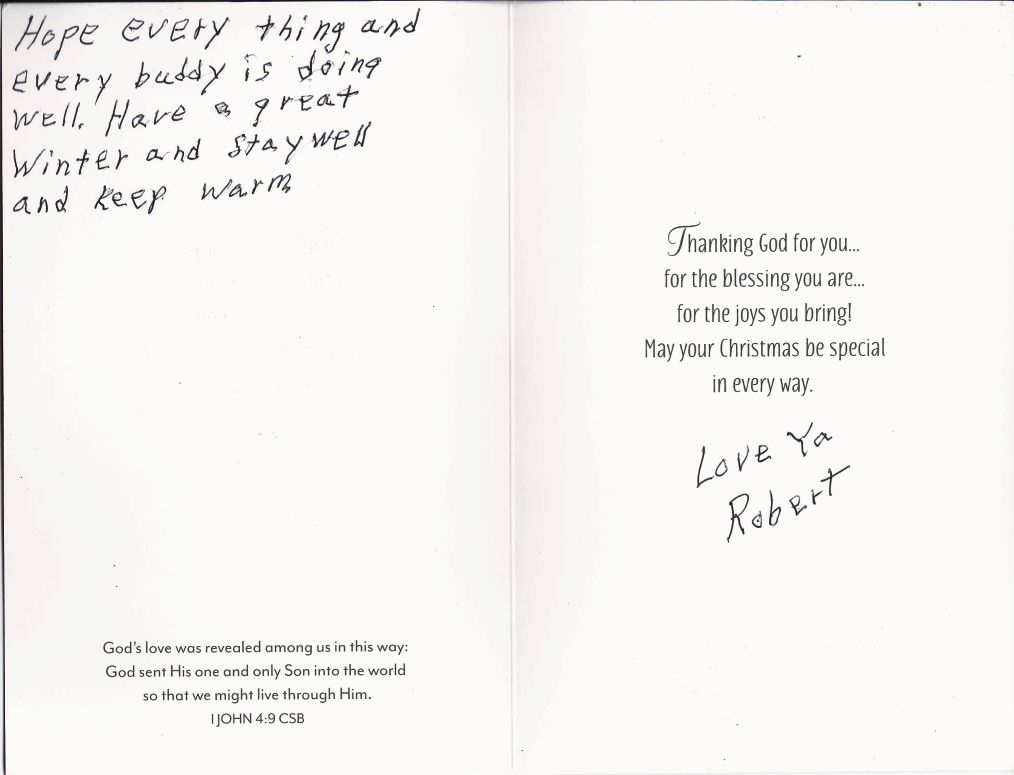 Hope every thing and
every buddy is doing
well. Have a great
Winter and stay well
and keep warm
God's love was revealed among us in this way:
God sent His one and only Son into the world
so that we might live through Him.
I JOHN 4:9 CSB
Thanking God for you...
for the blessing you are...
for the joys you bring!
May your Christmas be special
in every way.
Love Ya
Robert